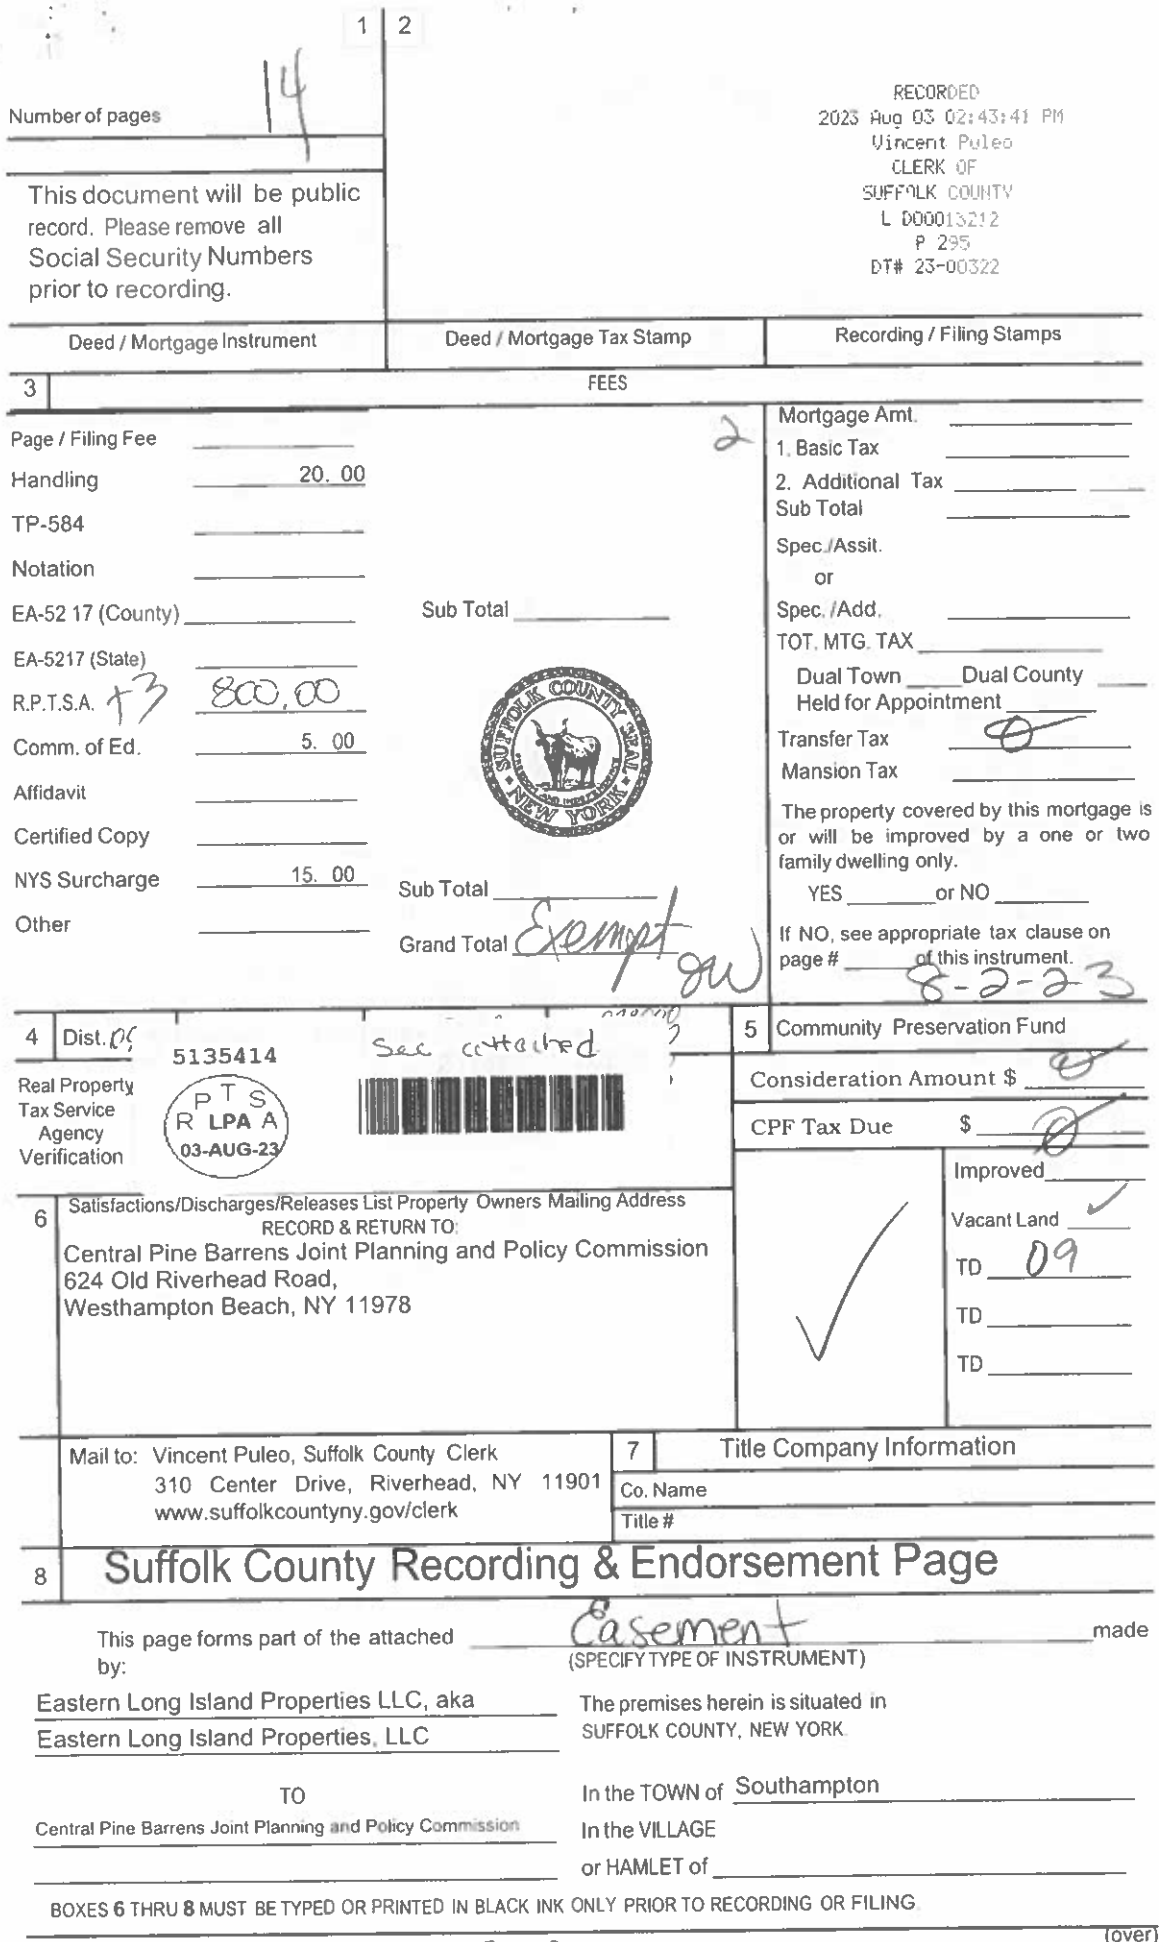 1 2
Number of pages 14
This document will be public
record. Please remove all
Social Security Numbers
prior to recording.
RECORDED
2023 Aug 03 02:43:41 PM
Vincent Puleo
CLERK OF
SUFFOLK COUNTY
L D00013212
P 295
DT# 23-00322
Deed / Mortgage Instrument
Deed / Mortgage Tax Stamp
Recording / Filing Stamps
3
FEES
Page / Filing Fee
Handling 20. 00
TP-584
Notation
EA-52 17 (County)
EA-5217 (State)
R.P.T.S.A. +3 800.00
Comm. of Ed. 5. 00
Affidavit
Certified Copy
NYS Surcharge 15. 00
Other
2
Sub Total
SUFFOLK COUNTY SEAL
NEW YORK
Sub Total
Grand Total Exempt
Mortgage Amt.
1. Basic Tax
2. Additional Tax
Sub Total
Spec./Assit.
or
Spec. /Add.
TOT. MTG. TAX
Dual Town Dual County
Held for Appointment
Transfer Tax
Mansion Tax
The property covered by this mortgage is
or will be improved by a one or two
family dwelling only.
YES or NO
If NO, see appropriate tax clause on
page # of this instrument.
8-2-23
4 Dist.
5135414
See attached
Real Property
Tax Service
Agency
Verification
P T S
R LPA A
03-AUG-23
5 Community Preservation Fund
Consideration Amount $
CPF Tax Due $
Improved
Vacant Land ✓
TD 09
TD
TD
6 Satisfactions/Discharges/Releases List Property Owners Mailing Address
RECORD & RETURN TO:
Central Pine Barrens Joint Planning and Policy Commission
624 Old Riverhead Road,
Westhampton Beach, NY 11978
Mail to: Vincent Puleo, Suffolk County Clerk
310 Center Drive, Riverhead, NY 11901
www.suffolkcountyny.gov/clerk
7 Title Company Information
Co. Name
Title #
8 Suffolk County Recording & Endorsement Page
This page forms part of the attached Easement made
by:
(SPECIFY TYPE OF INSTRUMENT)
Eastern Long Island Properties LLC, aka
Eastern Long Island Properties, LLC
The premises herein is situated in
SUFFOLK COUNTY, NEW YORK.
TO
In the TOWN of Southampton
Central Pine Barrens Joint Planning and Policy Commission
In the VILLAGE
or HAMLET of
BOXES 6 THRU 8 MUST BE TYPED OR PRINTED IN BLACK INK ONLY PRIOR TO RECORDING OR FILING.
(over)